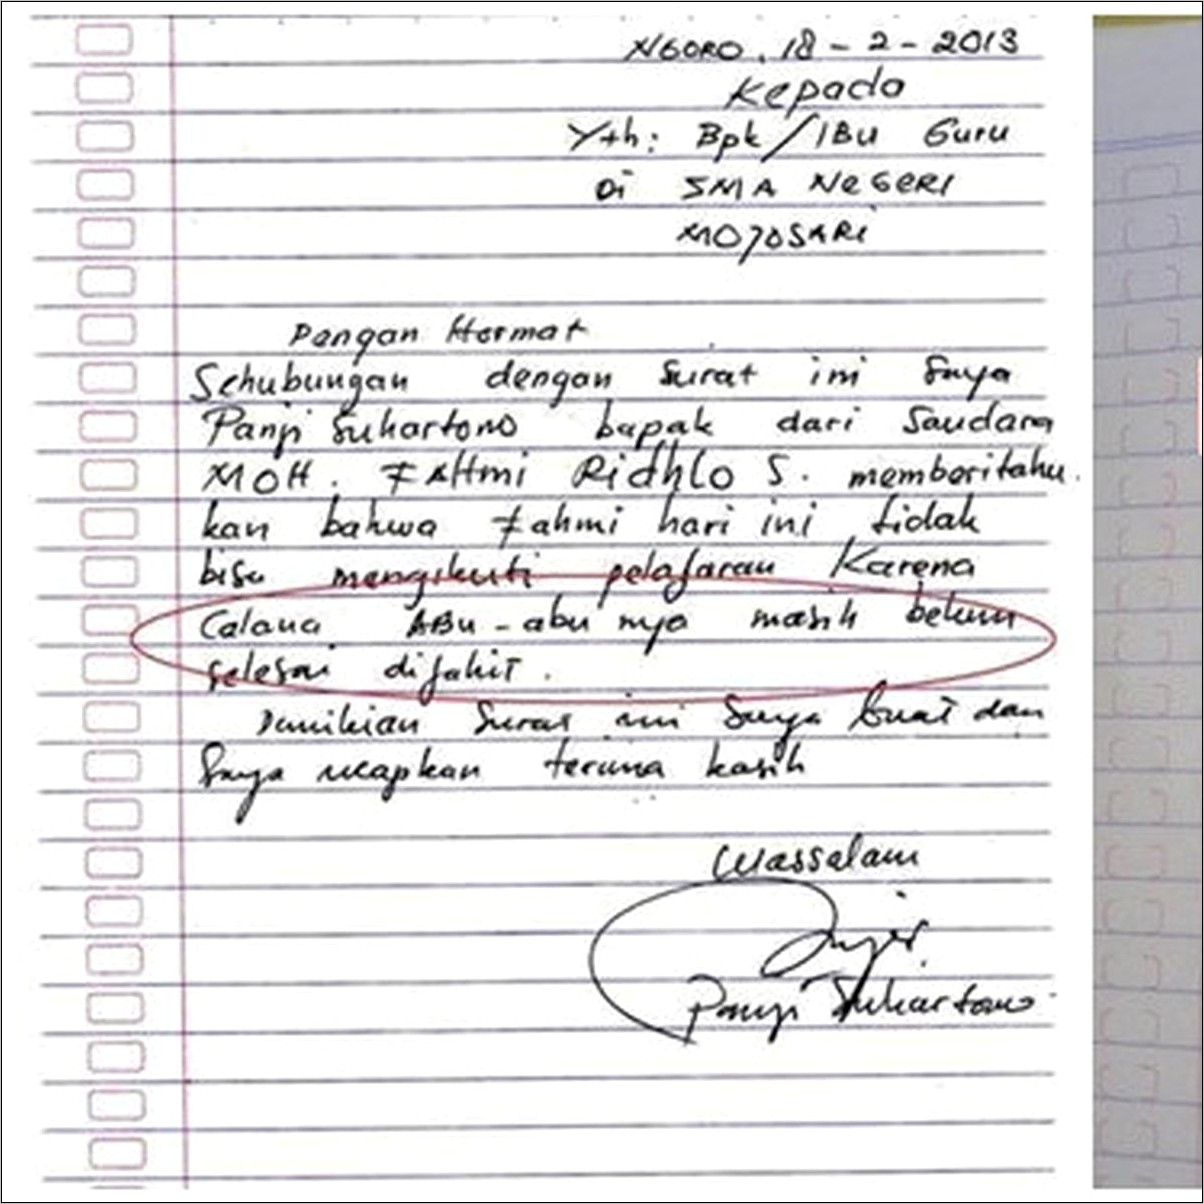 NGORO, 18 - 2 - 2013
Kepada
Yth: Bpk/IBu Guru
Di SMA NEGERI
MOJOSARI
Dengan Hormat
Sehubungan dengan surat ini Saya
Panji Suhartono bapak dari Saudara
MOH. FAHmi Ridhlo S. memberitahu
kan bahwa Fahmi hari ini tidak
bisa mengikuti pelajaran Karena
Calana ABu-abu nya masih belum
selesai dijahit.
Demikian Surat ini Saya buat dan
Saya ucapkan terima kasih
Wassalam
Panji Suhartono